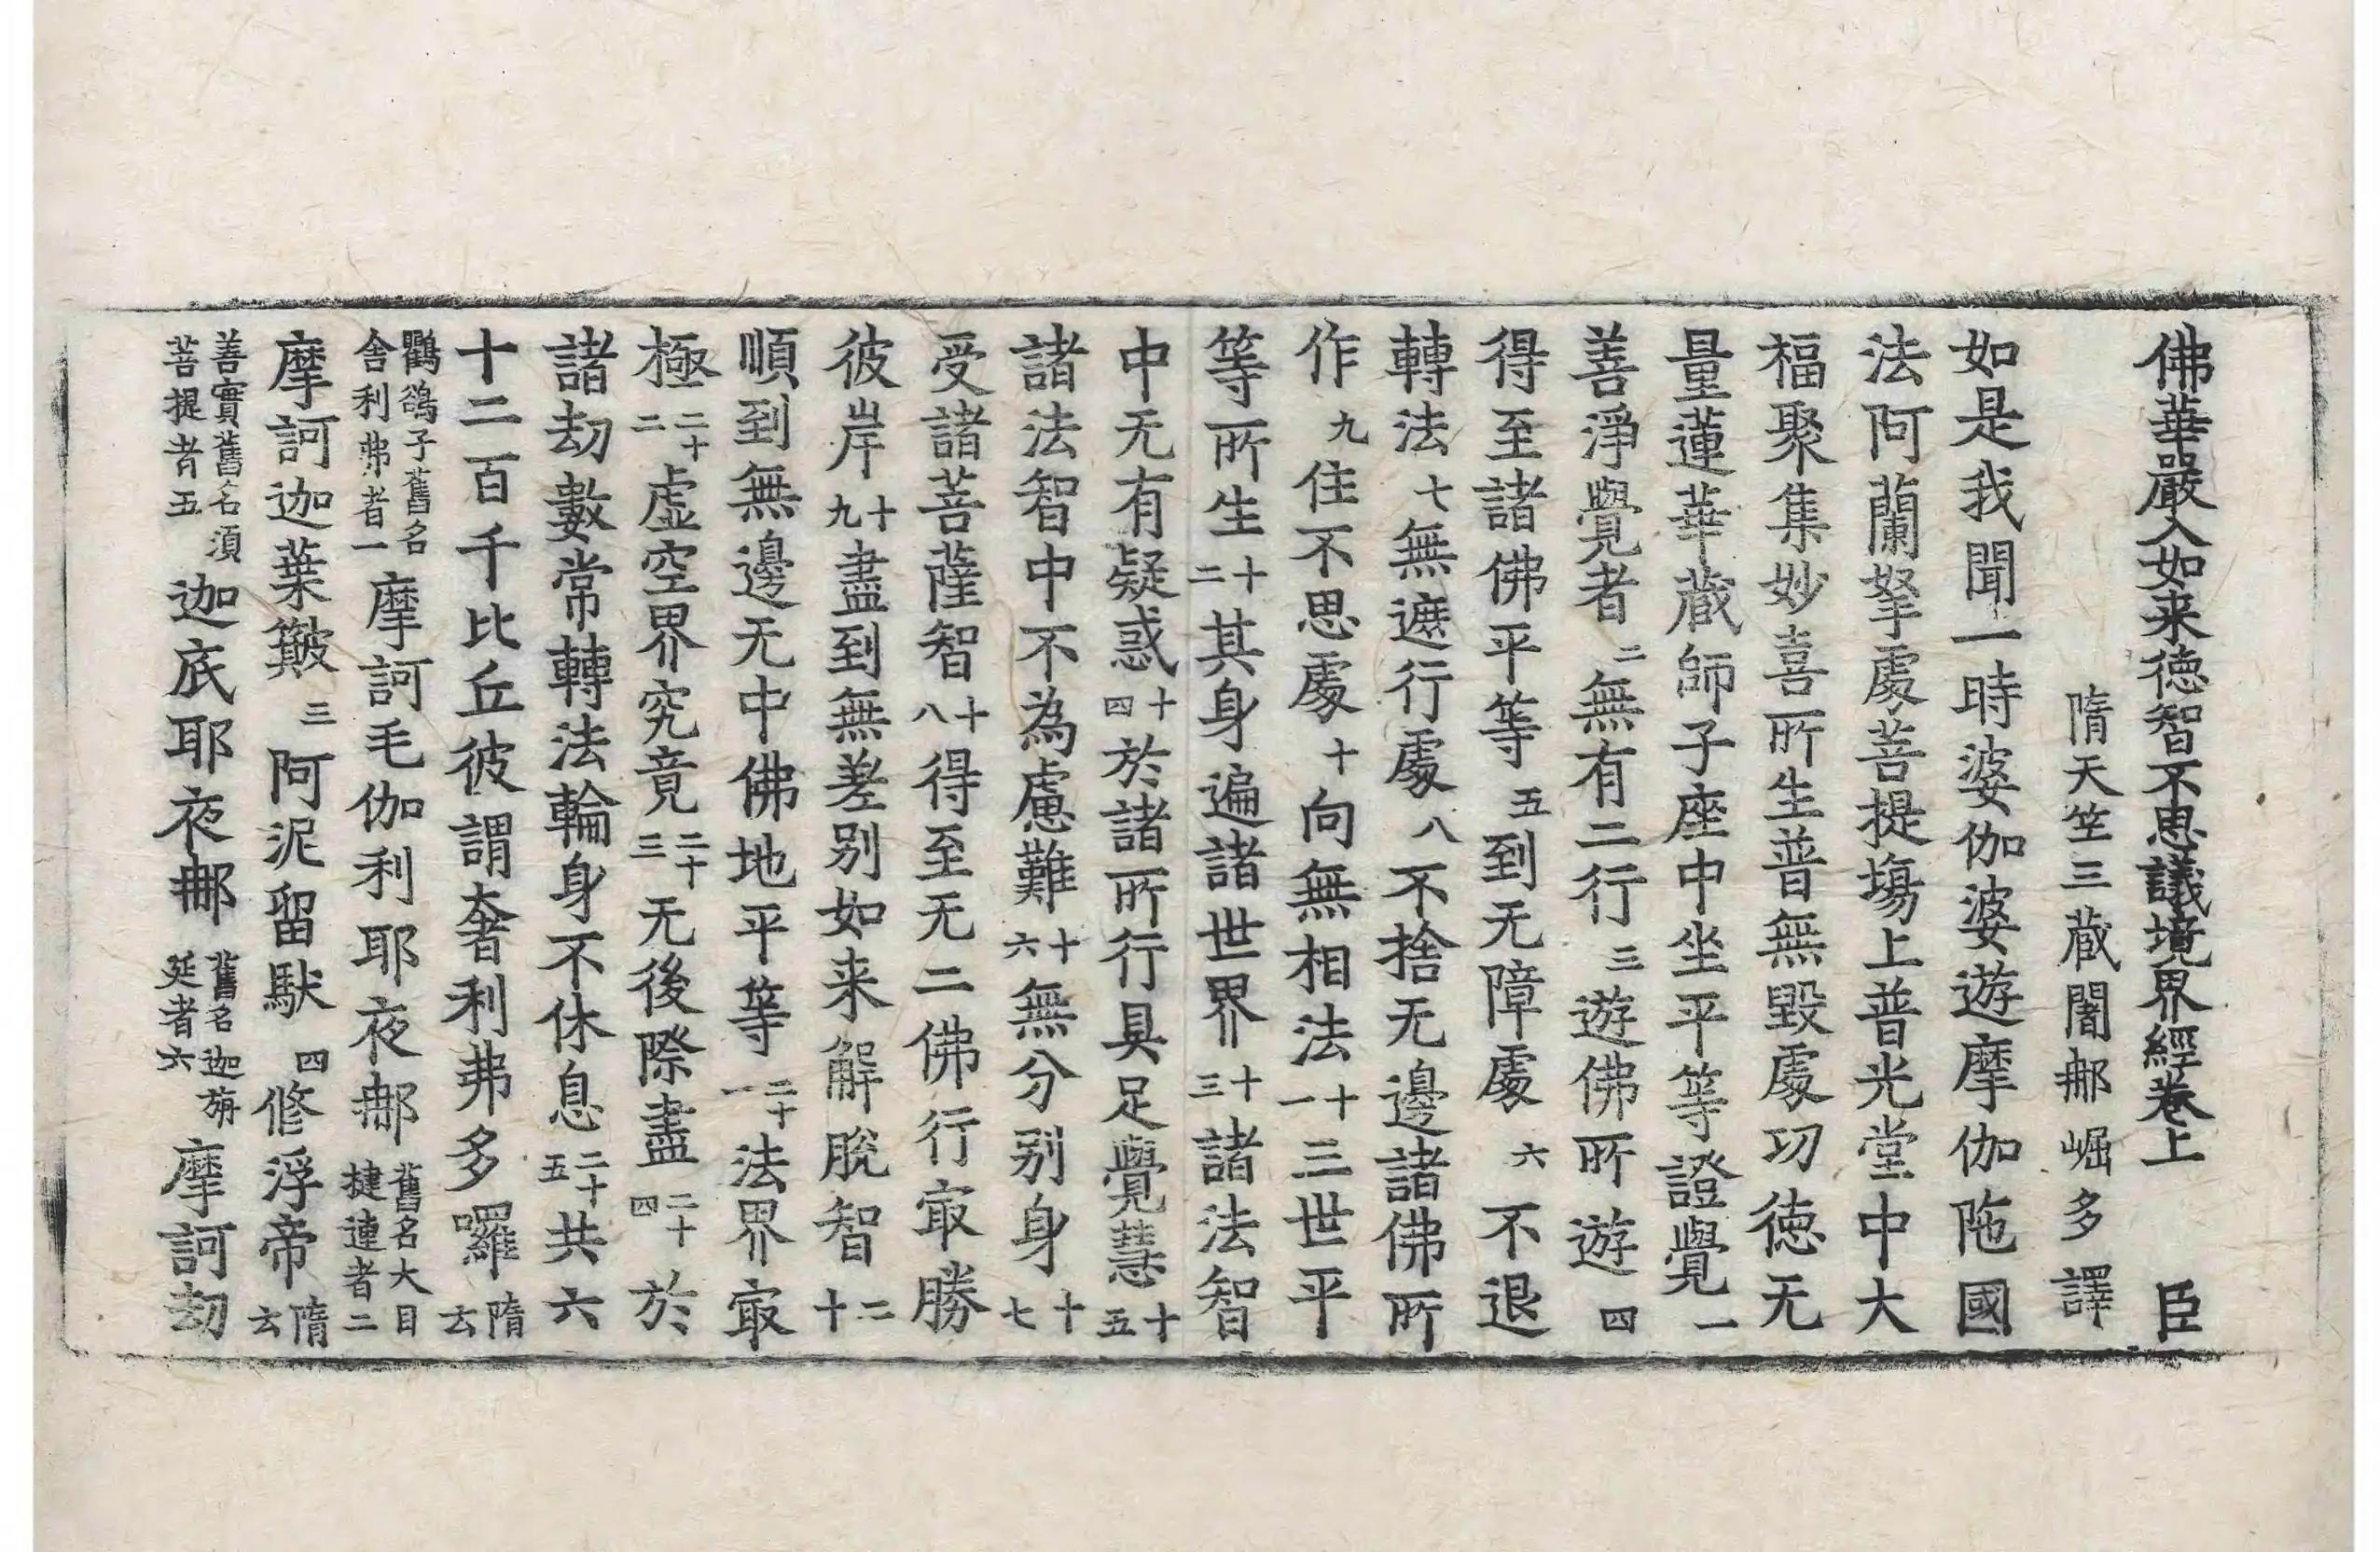 佛華嚴入如来徳智不思議境界經卷上 臣
隋天竺三藏闍𨚗崛多譯
如是我聞一時婆伽婆遊摩伽陁國
法阿蘭拏處菩提場上普光堂中大
福聚集妙喜所生普無毀處功徳无
量蓮華藏師子座中坐平等證覺一
善淨覺者二無有二行三遊佛所遊四
得至諸佛平等五到无障處六不退
轉法七無遮行處八不捨无邊諸佛所
作九住不思處十向無相法十一三世平
等所生十二其身遍諸世界十三諸法智
中无有疑惑十四於諸所行具足覺慧十五
諸法智中不為慮難十六無分别身十七
受諸菩薩智十八得至无二佛行㝡勝
彼岸十九盡到無差别如来解脫智二十
順到無邊无中佛地平等二十一法界㝡
極二十二虛空界究竟二十三无後際盡二十四於
諸劫數常轉法輪身不休息二十五共六
十二百千比丘彼謂奢利弗多囉隋云
鸜鵒子舊名舍利弗者一摩訶毛伽利耶夜𨚗舊名大目揵連者二
摩訶迦葉簸三阿泥留馱四修浮帝隋云
善實舊名須菩提者五迦底耶夜𨚗舊名迦旃延者六摩訶劫